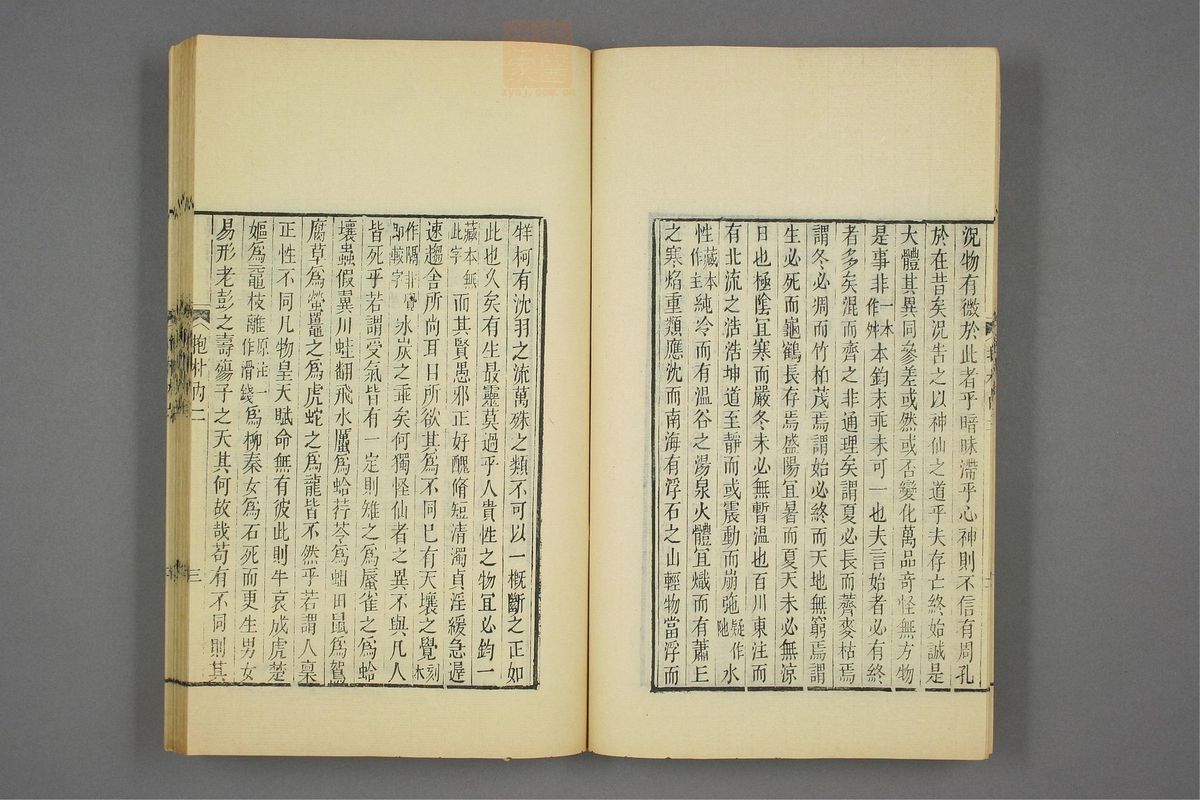 況物有微於此者乎暗昧滯乎心神則不信有周孔
於在昔矣況告之以神仙之道乎夫存亡終始誠是
大體其異同參差或然或否變化萬品奇怪無方物
是事非一本作舛本鈞末乖未可一也夫言始者必有終
者多矣混而齊之非通理矣謂夏必長而薺麥枯焉
謂冬必凋而竹柏茂焉謂始必終而天地無窮焉謂
生必死而龜鶴長存焉盛陽宜暑而夏天未必無涼
日也極陰宜寒而嚴冬未必無暫溫也百川東注而
有北流之浩浩坤道至靜而或震動而崩弛疑作阤水
性藏本作主純冷而有溫谷之湯泉火體宜熾而有蕭丘
之寒焰重類應沈而南海有浮石之山輕物當浮而
牂柯有沈羽之流萬殊之類不可以一概斷之正如
此也久矣有生最靈莫過乎人貴性之物宜必鈞一
藏本無此字而其賢愚邪正好醜脩短清濁貞淫緩急遲
速趨舍所尚耳目所欲其為不同已有天壤之覺刻本
作隔非覺即較字冰炭之乖矣何獨怪仙者之異不與凡人
皆死乎若謂受氣皆有一定則雉之為蜃雀之為蛤
壤蟲假翼川蛙翻飛水蠣為蛤荇苓為蛆田鼠為鴽
腐草為螢鼉之為虎蛇之為龍皆不然乎若謂人稟
正性不同凡物皇天賦命無有彼此則牛哀成虎楚
嫗為黿枝離原注一作滑錢為柳秦女為石死而更生男女
易形老彭之壽殤子之夭其何故哉苟有不同則其
抱朴內二
三